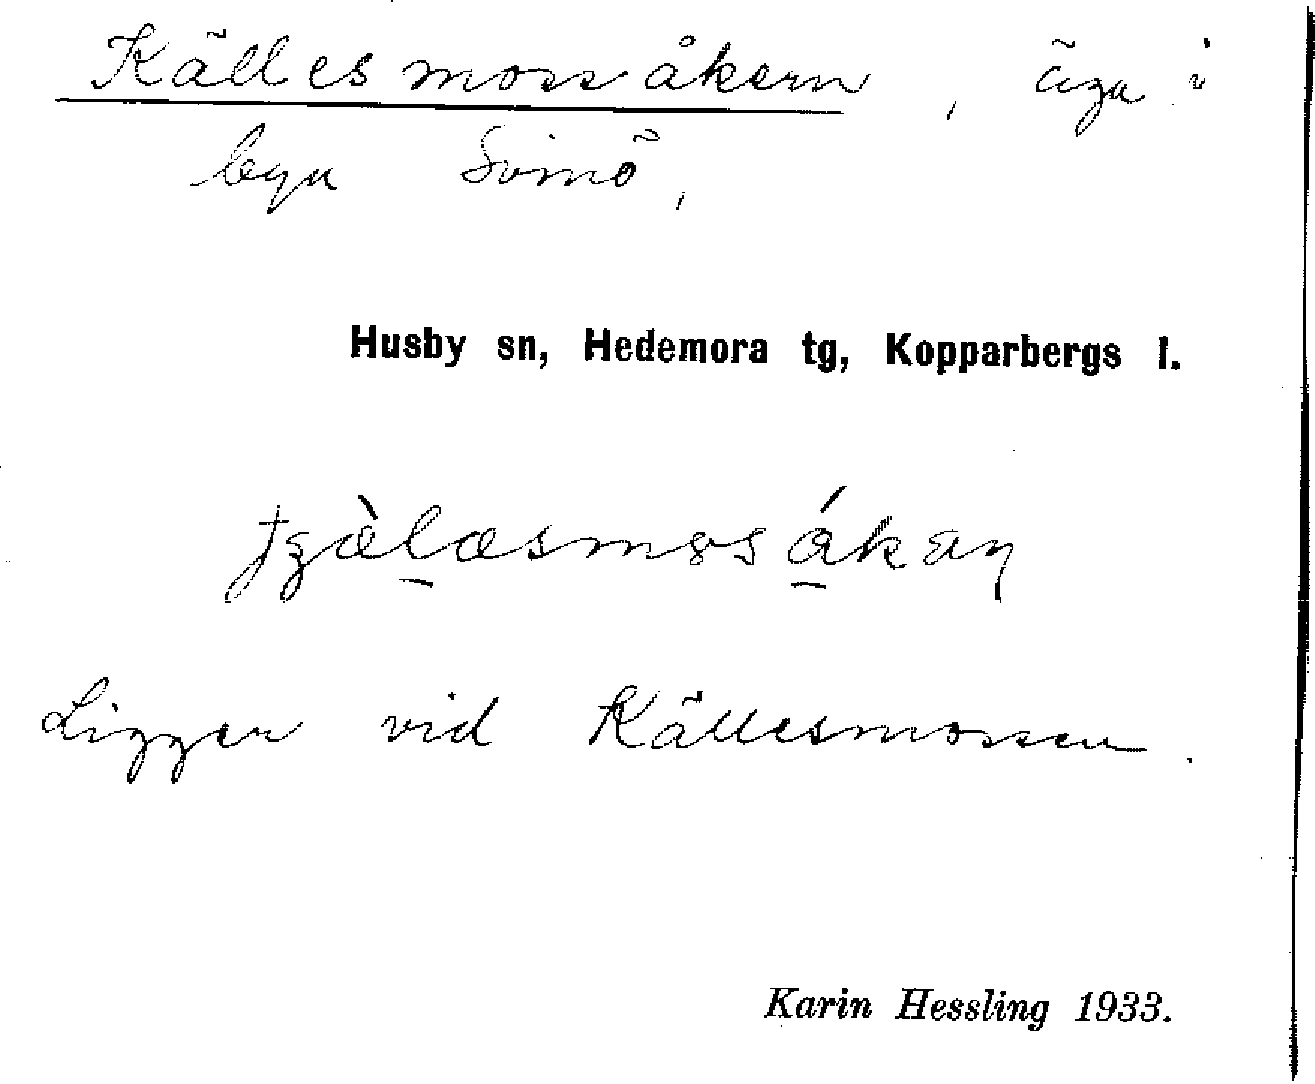 Källesmossåkern, äga i
byn Svinö,
Husby sn, Hedemora tg, Kopparbergs l.
Ligger vid Källesmossen.
Karin Hessling 1933.